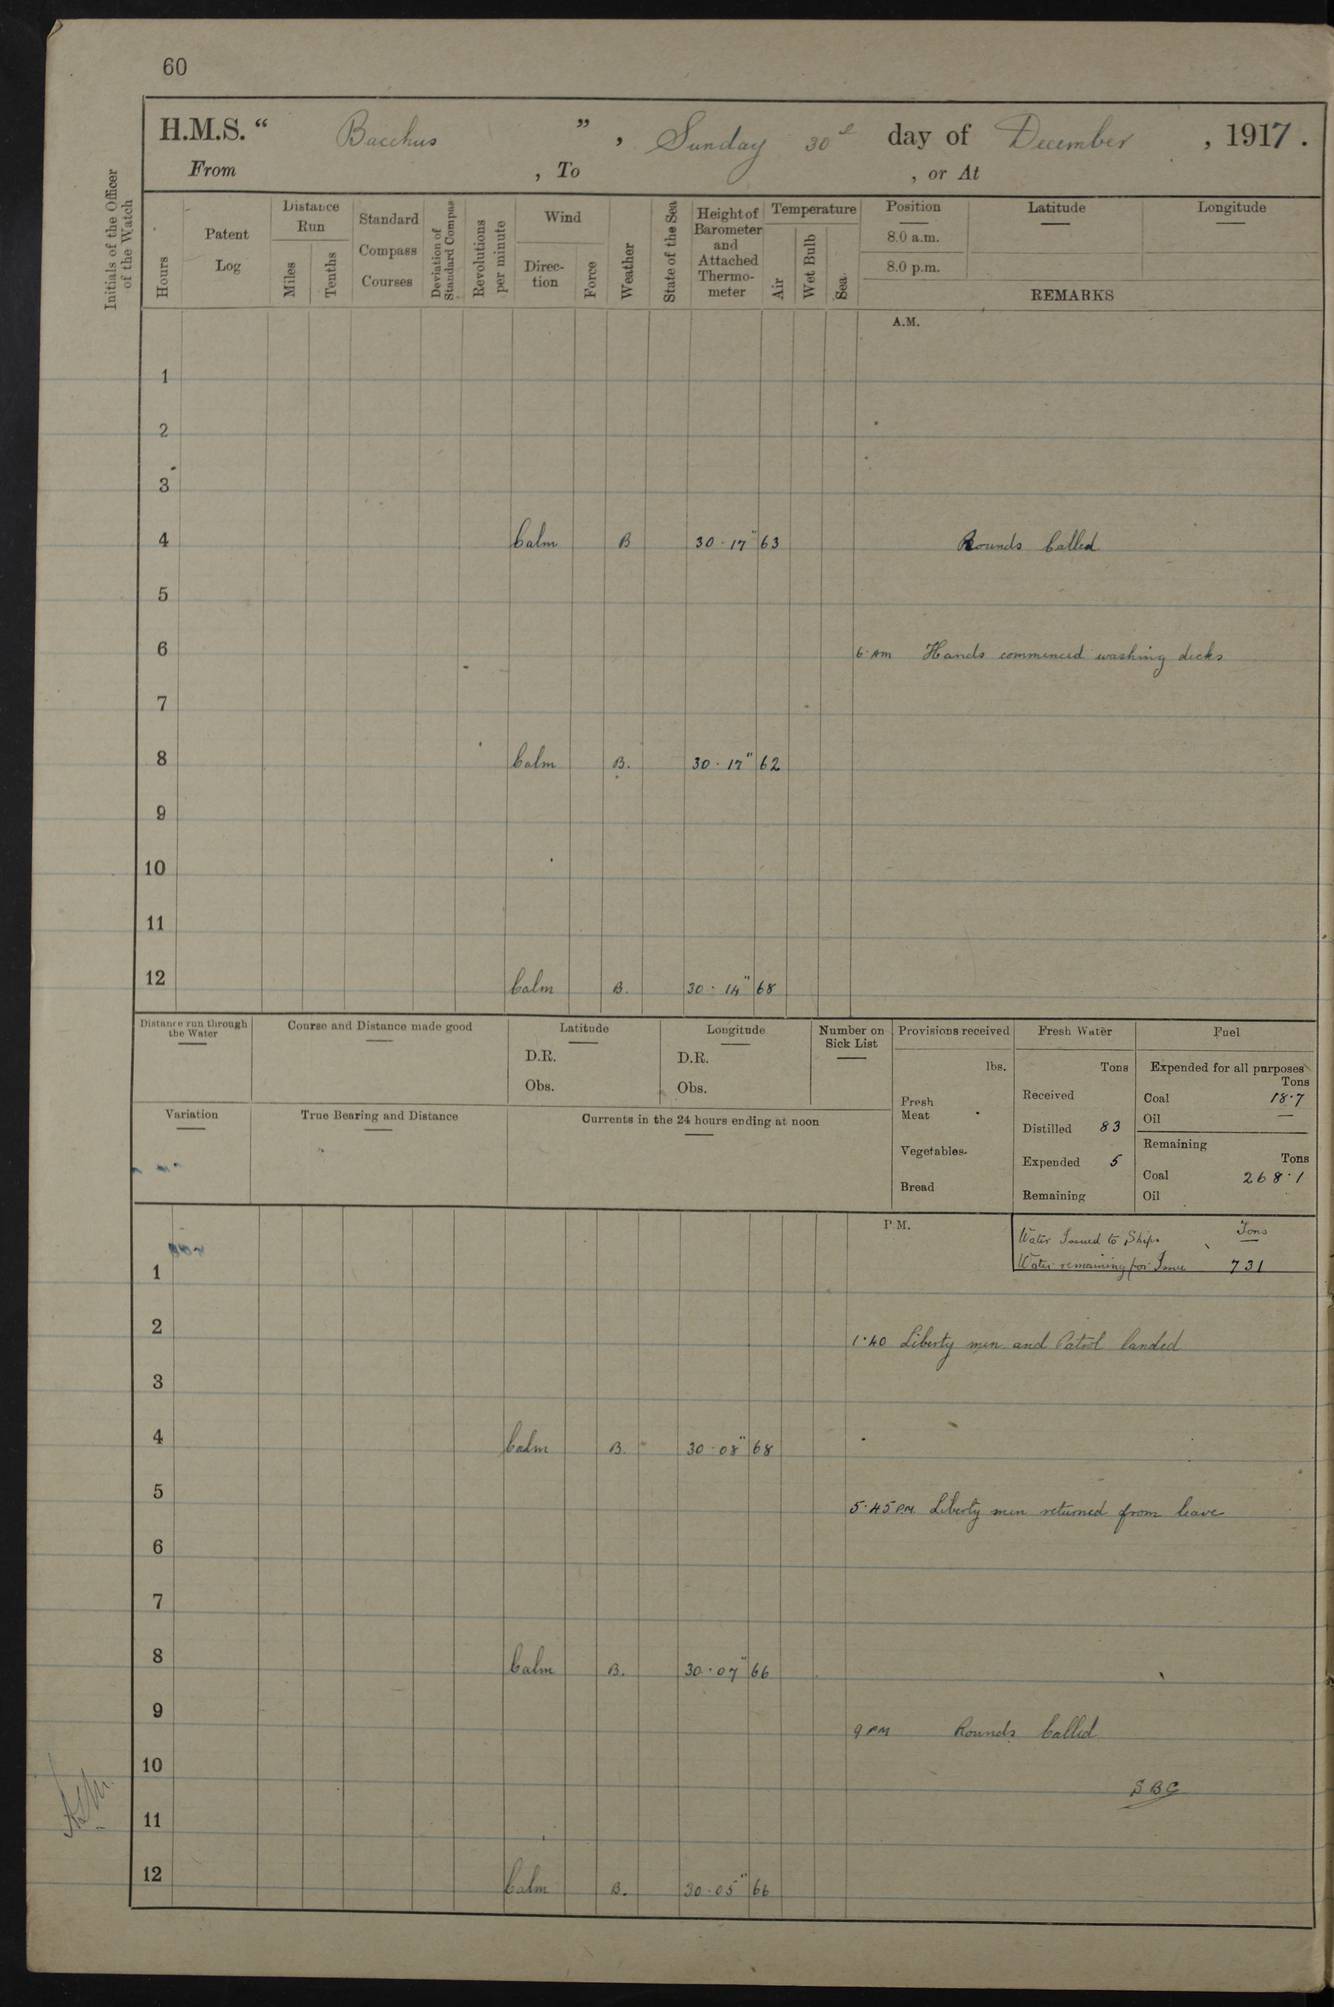 60
H.M.S. “ Bacchus ” , Sunday 30th day of December , 1917 .
From , To , or At
Initials of the Officer of the Watch
Hours
Patent Log
Distance Run
Miles
Tenths
Standard Compass Courses
Deviation of Standard Compass
Revolutions per minute
Wind
Direc-tion
Force
Weather
State of the Sea
Height of Barometer and Attached Thermo-meter
Temperature
Air
Wet Bulb
Sea
Position
8.0 a.m.
8.0 p.m.
Latitude
Longitude
REMARKS
A.M.
1
2
3
4 Calm B 30·17" 63 Rounds Called
5
6 6 AM Hands commenced washing decks
7
8 Calm B. 30·17" 62
9
10
11
12 Calm B. 30·14" 68
Distance run through the Water
Course and Distance made good
Latitude
D.R.
Obs.
Longitude
D.R.
Obs.
Number on Sick List
Provisions received
lbs.
Fresh Meat
Vegetables
Bread
Fresh Water
Tons
Received
Distilled 83
Expended 5
Remaining
Fuel
Expended for all purposes
Tons
Coal 18·7
Oil —
Remaining
Tons
Coal 268·1
Oil
Variation
True Bearing and Distance
Currents in the 24 hours ending at noon
P.M.
Water Issued to Ships Tons
Water remaining for Issue 731
1
2 1·40 Liberty men and Patrol landed
3
4 Calm B. 30·08" 68
5 5·45 PM Liberty men returned from leave
6
7
8 Calm B. 30·07" 66
9 9 PM Rounds Called
10 SBC
11
12 Calm B. 30·05" 66